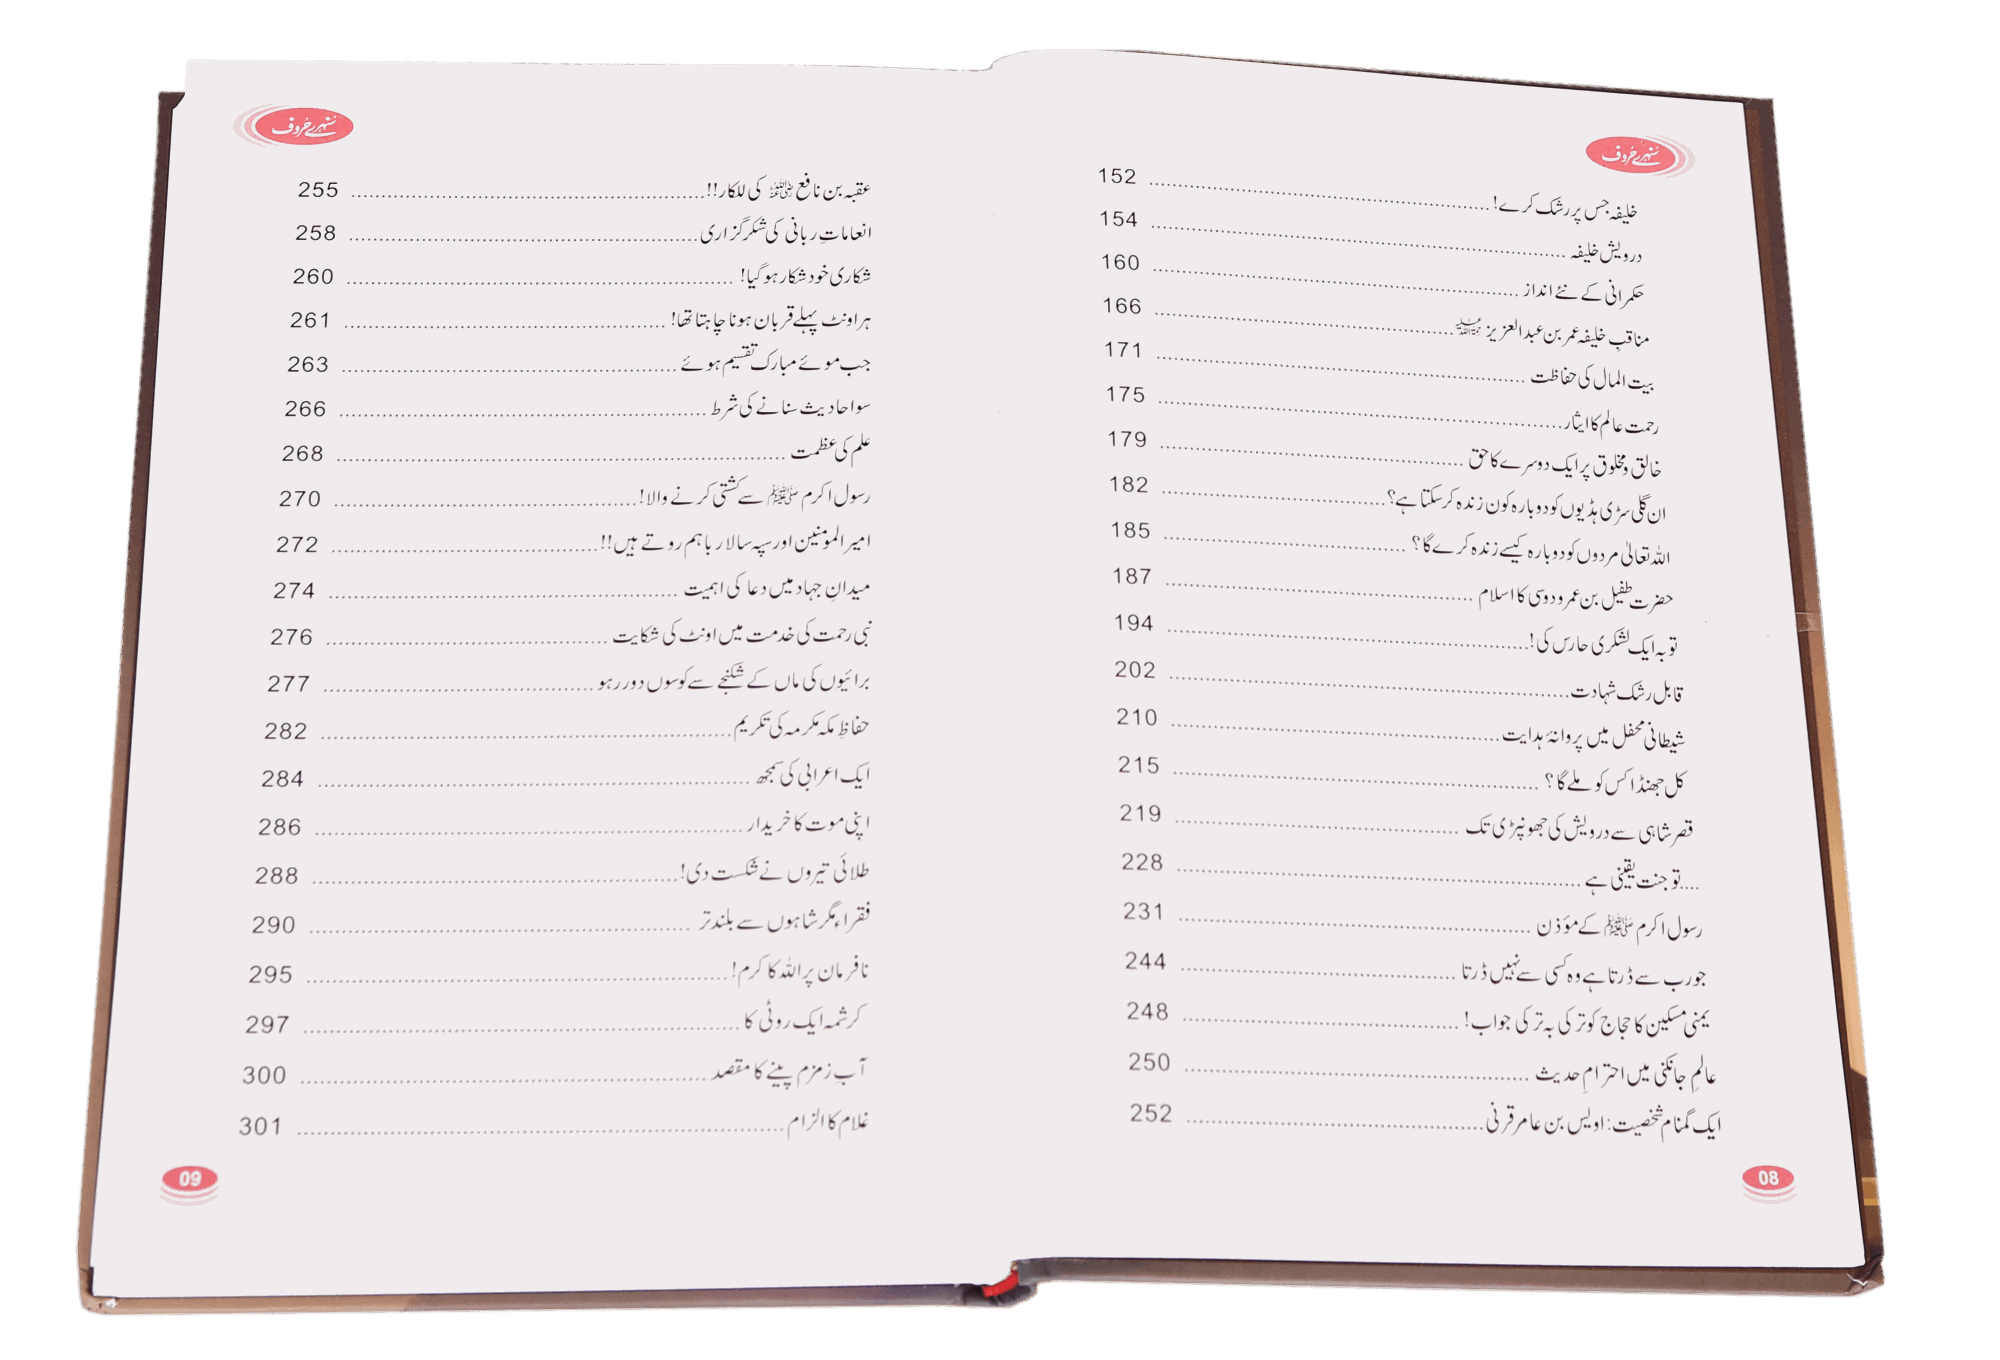 سُنہرے حُروف
خلیفہ جس پر رشک کرے! 152
درویش خلیفہ 154
حکمرانی کے نئے انداز 160
مناقبِ خلیفہ عمر بن عبدالعزیز رحمۃ اللہ علیہ 166
بیت المال کی حفاظت 171
رحمت عالم کا ایثار 175
خالق و مخلوق پر ایک دوسرے کا حق 179
ان گلی سڑی ہڈیوں کو دوبارہ کون زندہ کر سکتا ہے؟ 182
اللہ تعالیٰ مردوں کو دوبارہ کیسے زندہ کرے گا؟ 185
حضرت طفیل بن عمرو دوسی کا اسلام 187
توبہ ایک لشکری حارس کی! 194
قابل رشک شہادت 202
شیطانی محفل میں پروانۂ ہدایت 210
کل جھنڈا کس کو ملے گا؟ 215
قصر شاہی سے درویش کی جھونپڑی تک 219
....تو جنت یقینی ہے 228
رسول اکرم ﷺ کے مؤذن 231
جو رب سے ڈرتا ہے وہ کسی سے نہیں ڈرتا 244
یمنی مسکین کا حجاج کو ترکی بہ ترکی جواب! 248
عالمِ جانکنی میں احترامِ حدیث 250
ایک گمنام شخصیت: اویس بن عامر قرنی 252
08
سُنہرے حُروف
عقبہ بن نافع رضی اللہ عنہ کی للکار!! 255
انعاماتِ ربانی کی شکر گزاری 258
شکاری خود شکار ہو گیا! 260
ہر اونٹ پہلے قربان ہونا چاہتا تھا! 261
جب موئے مبارک تقسیم ہوئے 263
سو احادیث سنانے کی شرط 266
علم کی عظمت 268
رسول اکرم ﷺ سے کشتی کرنے والا! 270
امیر المومنین اور سپہ سالار باہم روتے ہیں!! 272
میدانِ جہاد میں دعا کی اہمیت 274
نبی رحمت کی خدمت میں اونٹ کی شکایت 276
برائیوں کی ماں کے شکنجے سے کوسوں دور رہو 277
حفاظِ مکہ مکرمہ کی تکریم 282
ایک اعرابی کی سمجھ 284
اپنی موت کا خریدار 286
طلائی تیروں نے شکست دی! 288
فقراء مگر شاہوں سے بلند تر 290
نافرمان پر اللہ کا کرم! 295
کرشمہ ایک روٹی کا 297
آبِ زمزم پینے کا مقصد 300
غلام کا الزام 301
09